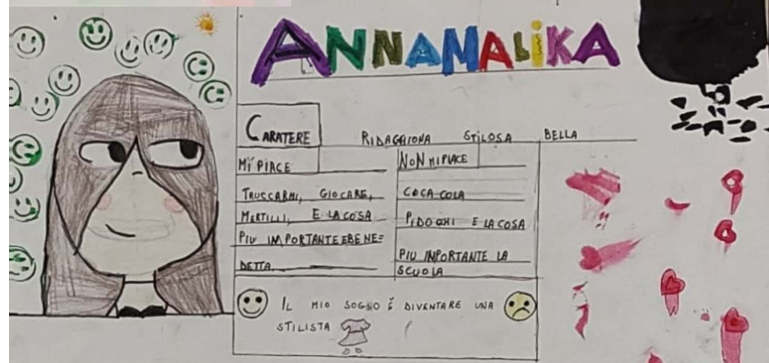 ANNAMALIKA
CARATERE RIDAGGIONA STILOSA BELLA
MI PIACE
TRUCCARMI, GIOCARE,
MERTILLI, E LA COSA
PIU IMPORTANTE EBENE=
DETTA
NON MI PIACE
COCA COLA
PIDOCCHI E LA COSA
PIU INPORTANTE LA
SCUOLA
IL MIO SOGNO É DIVENTARE UNA
STILISTA